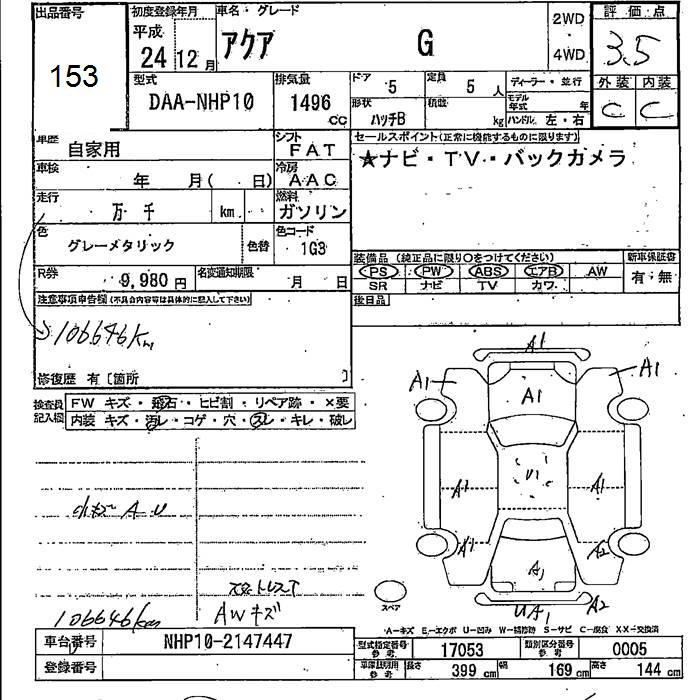 出品番号 初度登録年月 車名・グレード 2WD 評価点
153 平成 24 12月 アクア G 4WD 3.5
型式 排気量 ドア 5 定員 5人 ディーラー・並行 外装 内装
DAA-NHP10 1496 CC 形状 ハッチB 積載 kg モデル年式 年 ハンドル 左・右 C C
車歴 自家用 シフト FAT セールスポイント(正常に機能するものに限ります)
車検 年 月( 日) 冷房 AAC ★ナビ・TV・バックカメラ
走行 万 千 km 燃料 ガソリン
色 グレーメタリック 色替 色コード 1G3
装備品(純正品に限り○をつけてください) 新車保証書
R券 9,980円 名変通知期限 月 日 PS PW ABS エアB AW 有・無
SR ナビ TV カワ
注意事項申告欄(不具合内容等は具体的に記入して下さい) 後日品
106646km
修復歴 有〔箇所 〕
検査員記入欄 FW キズ・飛石・ヒビ割・リペア跡・×要
内装 キズ・汚レ・コゲ・穴・スレ・キレ・破レ
A1
A1 A1 A1
U1
A1 A1
A1 A2
A1
UA1 A2
小キズ A U
AWキズ
スペア
106646km
A-キズ E-エクボ U-凹み W-補修跡 S-サビ C-腐食 XX-交換済
車台番号 NHP10-2147447 型式指定番号 参考 17053 類別区分番号 参考 0005
登録番号 車庫証明用 参考 長さ 399 cm 幅 169 cm 高さ 144 cm